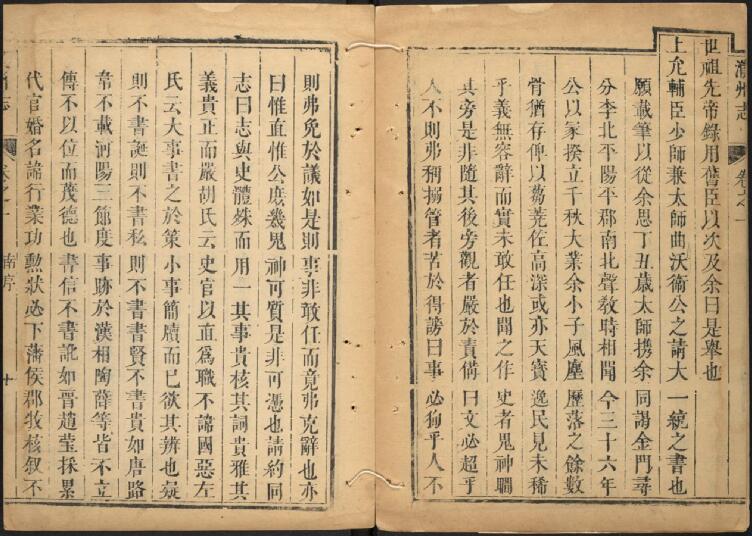 濟州志 卷之一
世祖先帝錄用舊臣以次及余曰是舉也
上允輔臣少師兼太師曲沃衛公之請大一統之書也
願載筆以從余思丁丑歲太師携余同謁金門尋
分李北平陽平郡南北聲教時相聞今三十六年
公以家揆立千秋大業余小子風塵歷落之餘數
骨猶存俾以蒭蕘佐高深或亦天寶逸民見未稀
乎義無容辭而實未敢任也聞之作史者鬼神瞷
其旁是非隨其後旁觀者嚴於責備曰文必超乎
人不則弗稱搦管者苦於得謗曰事必狥乎人不
則弗免於議如是則事非敢任而竟弗克辭也亦
曰惟直惟公庶幾鬼神可質是非可憑也請約同
志曰志與史體殊而用一其事貴核其詞貴雅其
義貴正而嚴胡氏云史官以直爲職不諱國惡左
氏云大事書之於策小事簡牘而已欲其辨也疑
則不書誕則不書私則不書書賢不書貴如唐路
韋不載河陽三節度事跡於漢相陶薛等皆不立
傳不以位而茂德也書信不書訛如晋趙瑩採累
代官婚名諱行業功勲狀必下藩侯郡牧核叙不
州志 卷之一 序 十